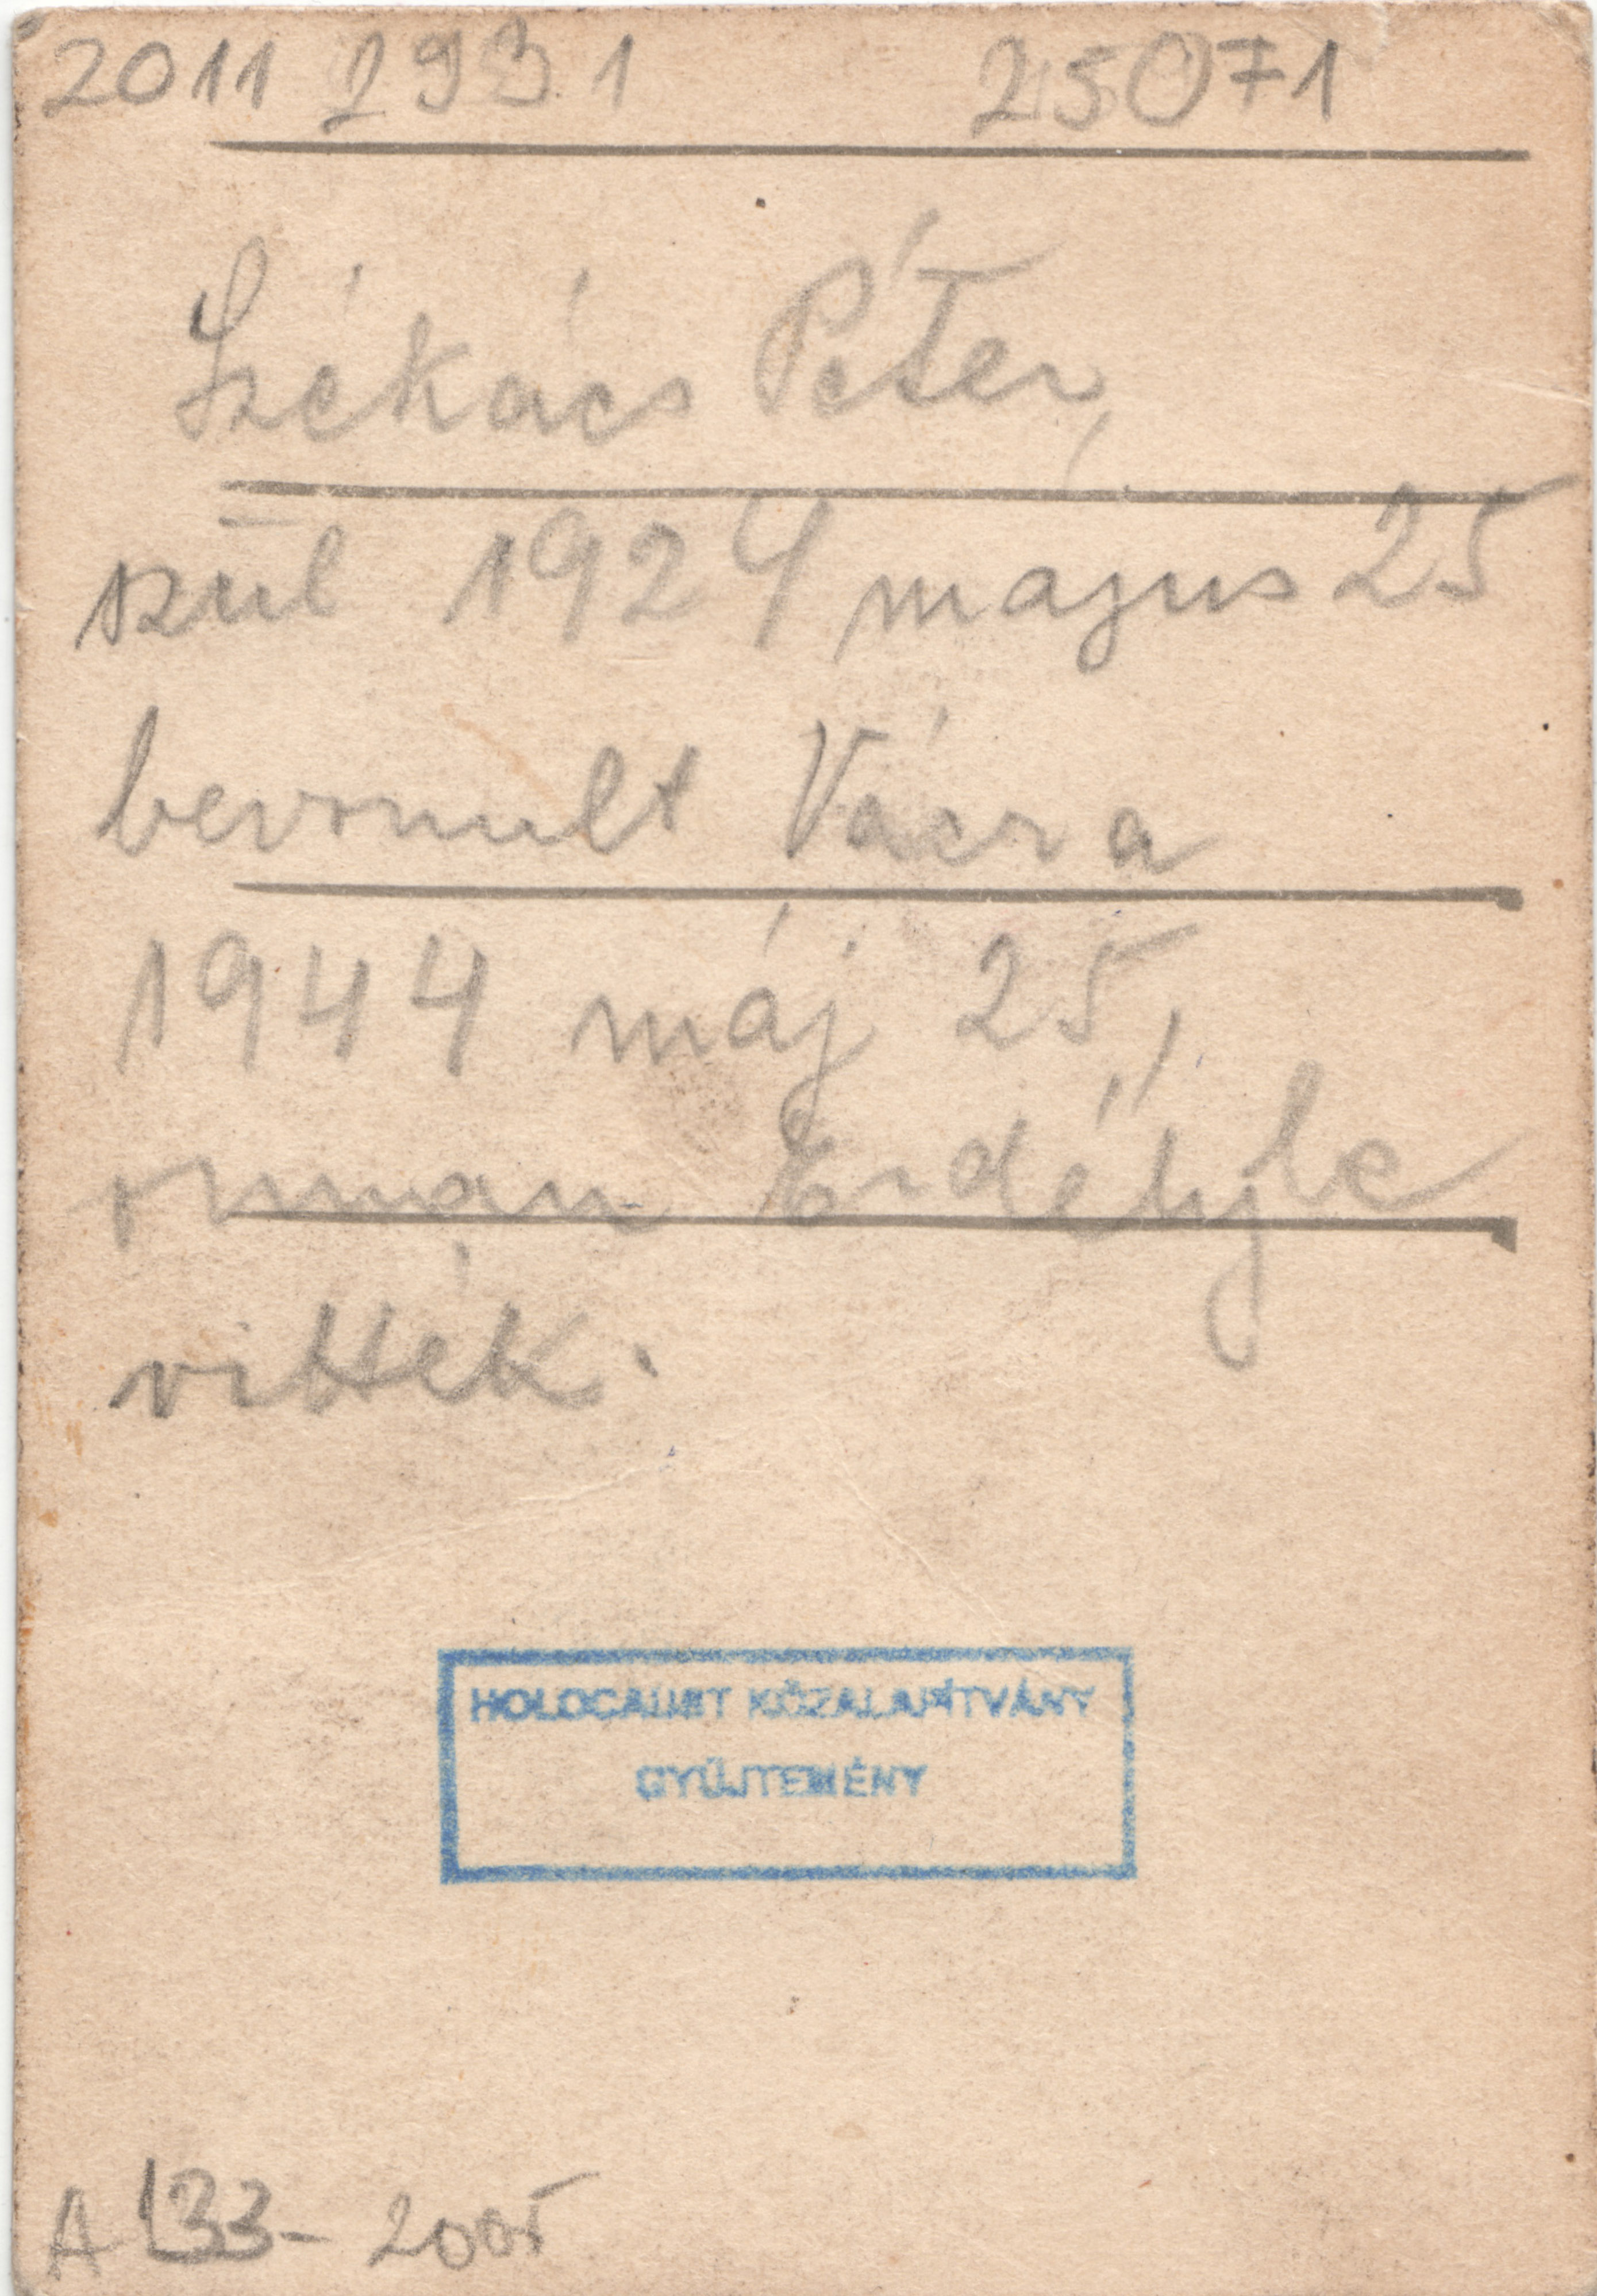 2011 293 1 25071
Székács Péter,
szül 1924 majus 25
bevonult Vácra
1944 máj 25,
román Erdélybe
vitték.
HOLOCAUST KÖZALAPÍTVÁNY
GYŰJTEMÉNY
A 133-2005